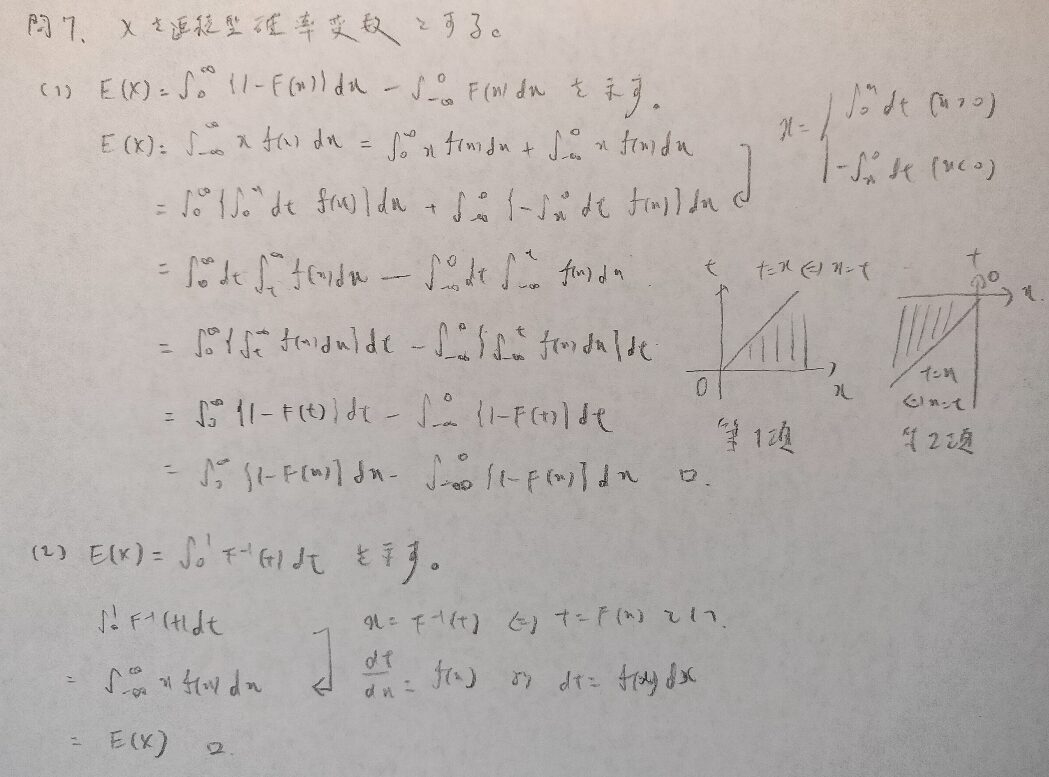 問7. Xを連続型確率変数とする。
(1) E(X) = ∫₀^∞ {1-F(x)}dx - ∫_{-∞}^0 F(x)dx を示す。
E(X) = ∫_{-∞}^∞ x f(x) dx = ∫₀^∞ x f(x)dx + ∫_{-∞}^0 x f(x)dx
x = { ∫₀^x dt (x>0)
-∫_x^0 dt (x<0)
= ∫₀^∞ {∫₀^x dt f(x)}dx + ∫_{-∞}^0 {-∫_x^0 dt f(x)}dx
= ∫₀^∞ dt ∫_t^∞ f(x)dx - ∫_{-∞}^0 dt ∫_{-∞}^t f(x)dx
= ∫₀^∞ {∫_t^∞ f(x)dx}dt - ∫_{-∞}^0 {∫_{-∞}^t f(x)dx}dt
= ∫₀^∞ {1-F(t)}dt - ∫_{-∞}^0 {1-F(t)}dt
= ∫₀^∞ {1-F(x)}dx - ∫_{-∞}^0 {1-F(x)}dx □.
t t=x ⇔ x=t
0 x
第1項
t
0 x
t=x
⇔ x=t
第2項
(2) E(X) = ∫₀^1 F^{-1}(t)dt を示す。
∫₀^1 F^{-1}(t)dt
x = F^{-1}(t) ⇔ t = F(x) として
= ∫_{-∞}^∞ x f(x)dx
dt/dx = f(x) より dt = f(x)dx
= E(X) □.